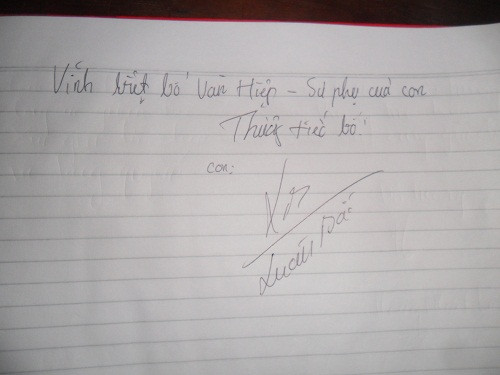 Vĩnh biệt bố Văn Hiệp - Sư phụ của con
Thương tiếc bố!
con:
Xuân Bắc